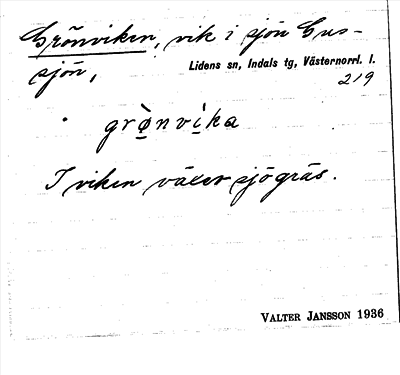 Grönviken, vik i sjön Gus-
sjön,
Lidens sn, Indals tg, Västernorrl. l.
219
grø̀nvìka
I viken växer sjögräs.
VALTER JANSSON 1936